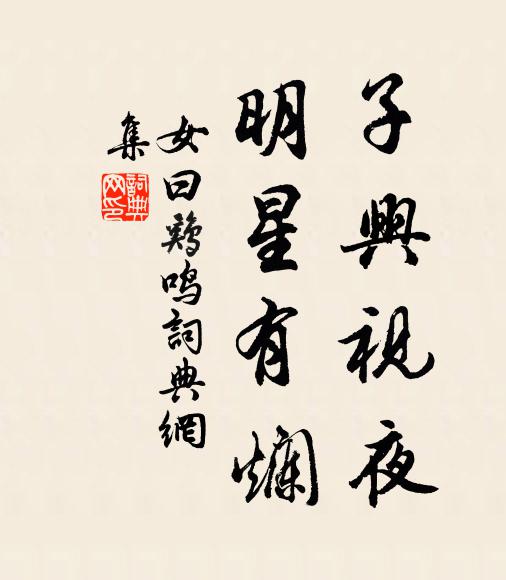 子興視夜
明星有爛
女曰鷄鳴詞典網
集
詞典網印